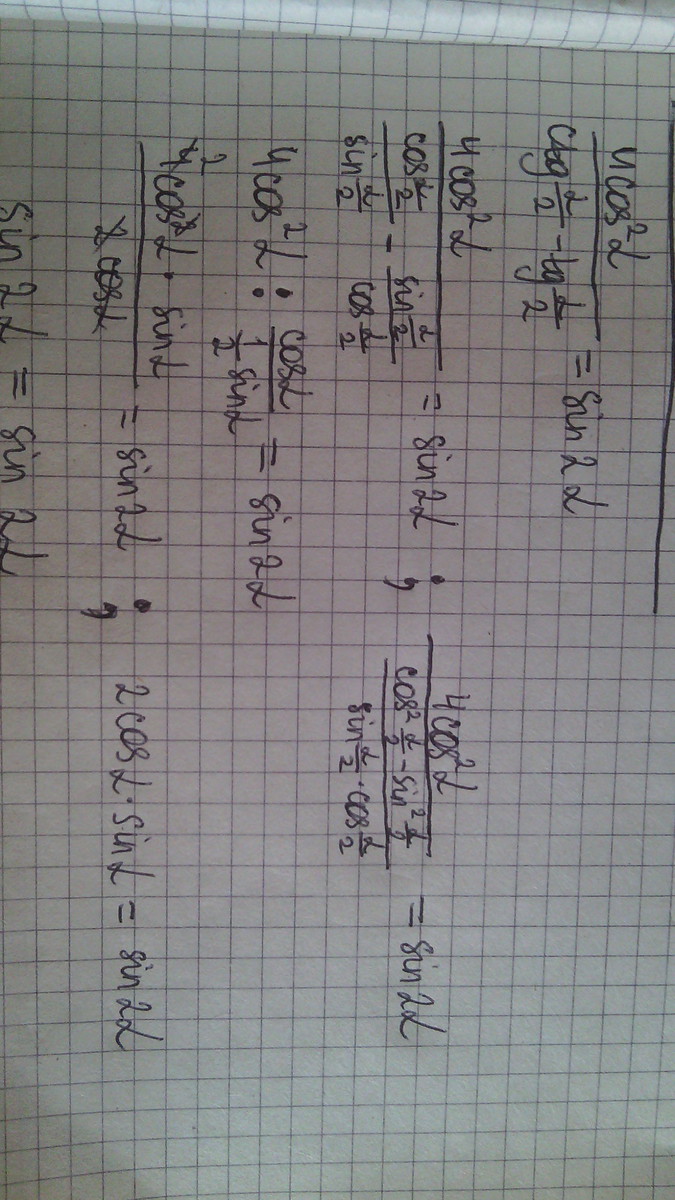 4cos²α / (ctg α/2 - tg α/2) = sin 2α
4cos²α / (cos α/2 / sin α/2 - sin α/2 / cos α/2) = sin 2α ; 4cos²α / ((cos² α/2 - sin² α/2) / (sin α/2 · cos α/2)) = sin 2α
4cos²α : cosα / (1/2 sinα) = sin 2α
4cos²α · sinα / 2cosα = sin 2α ; 2cosα · sinα = sin 2α
sin 2α = sin 2α